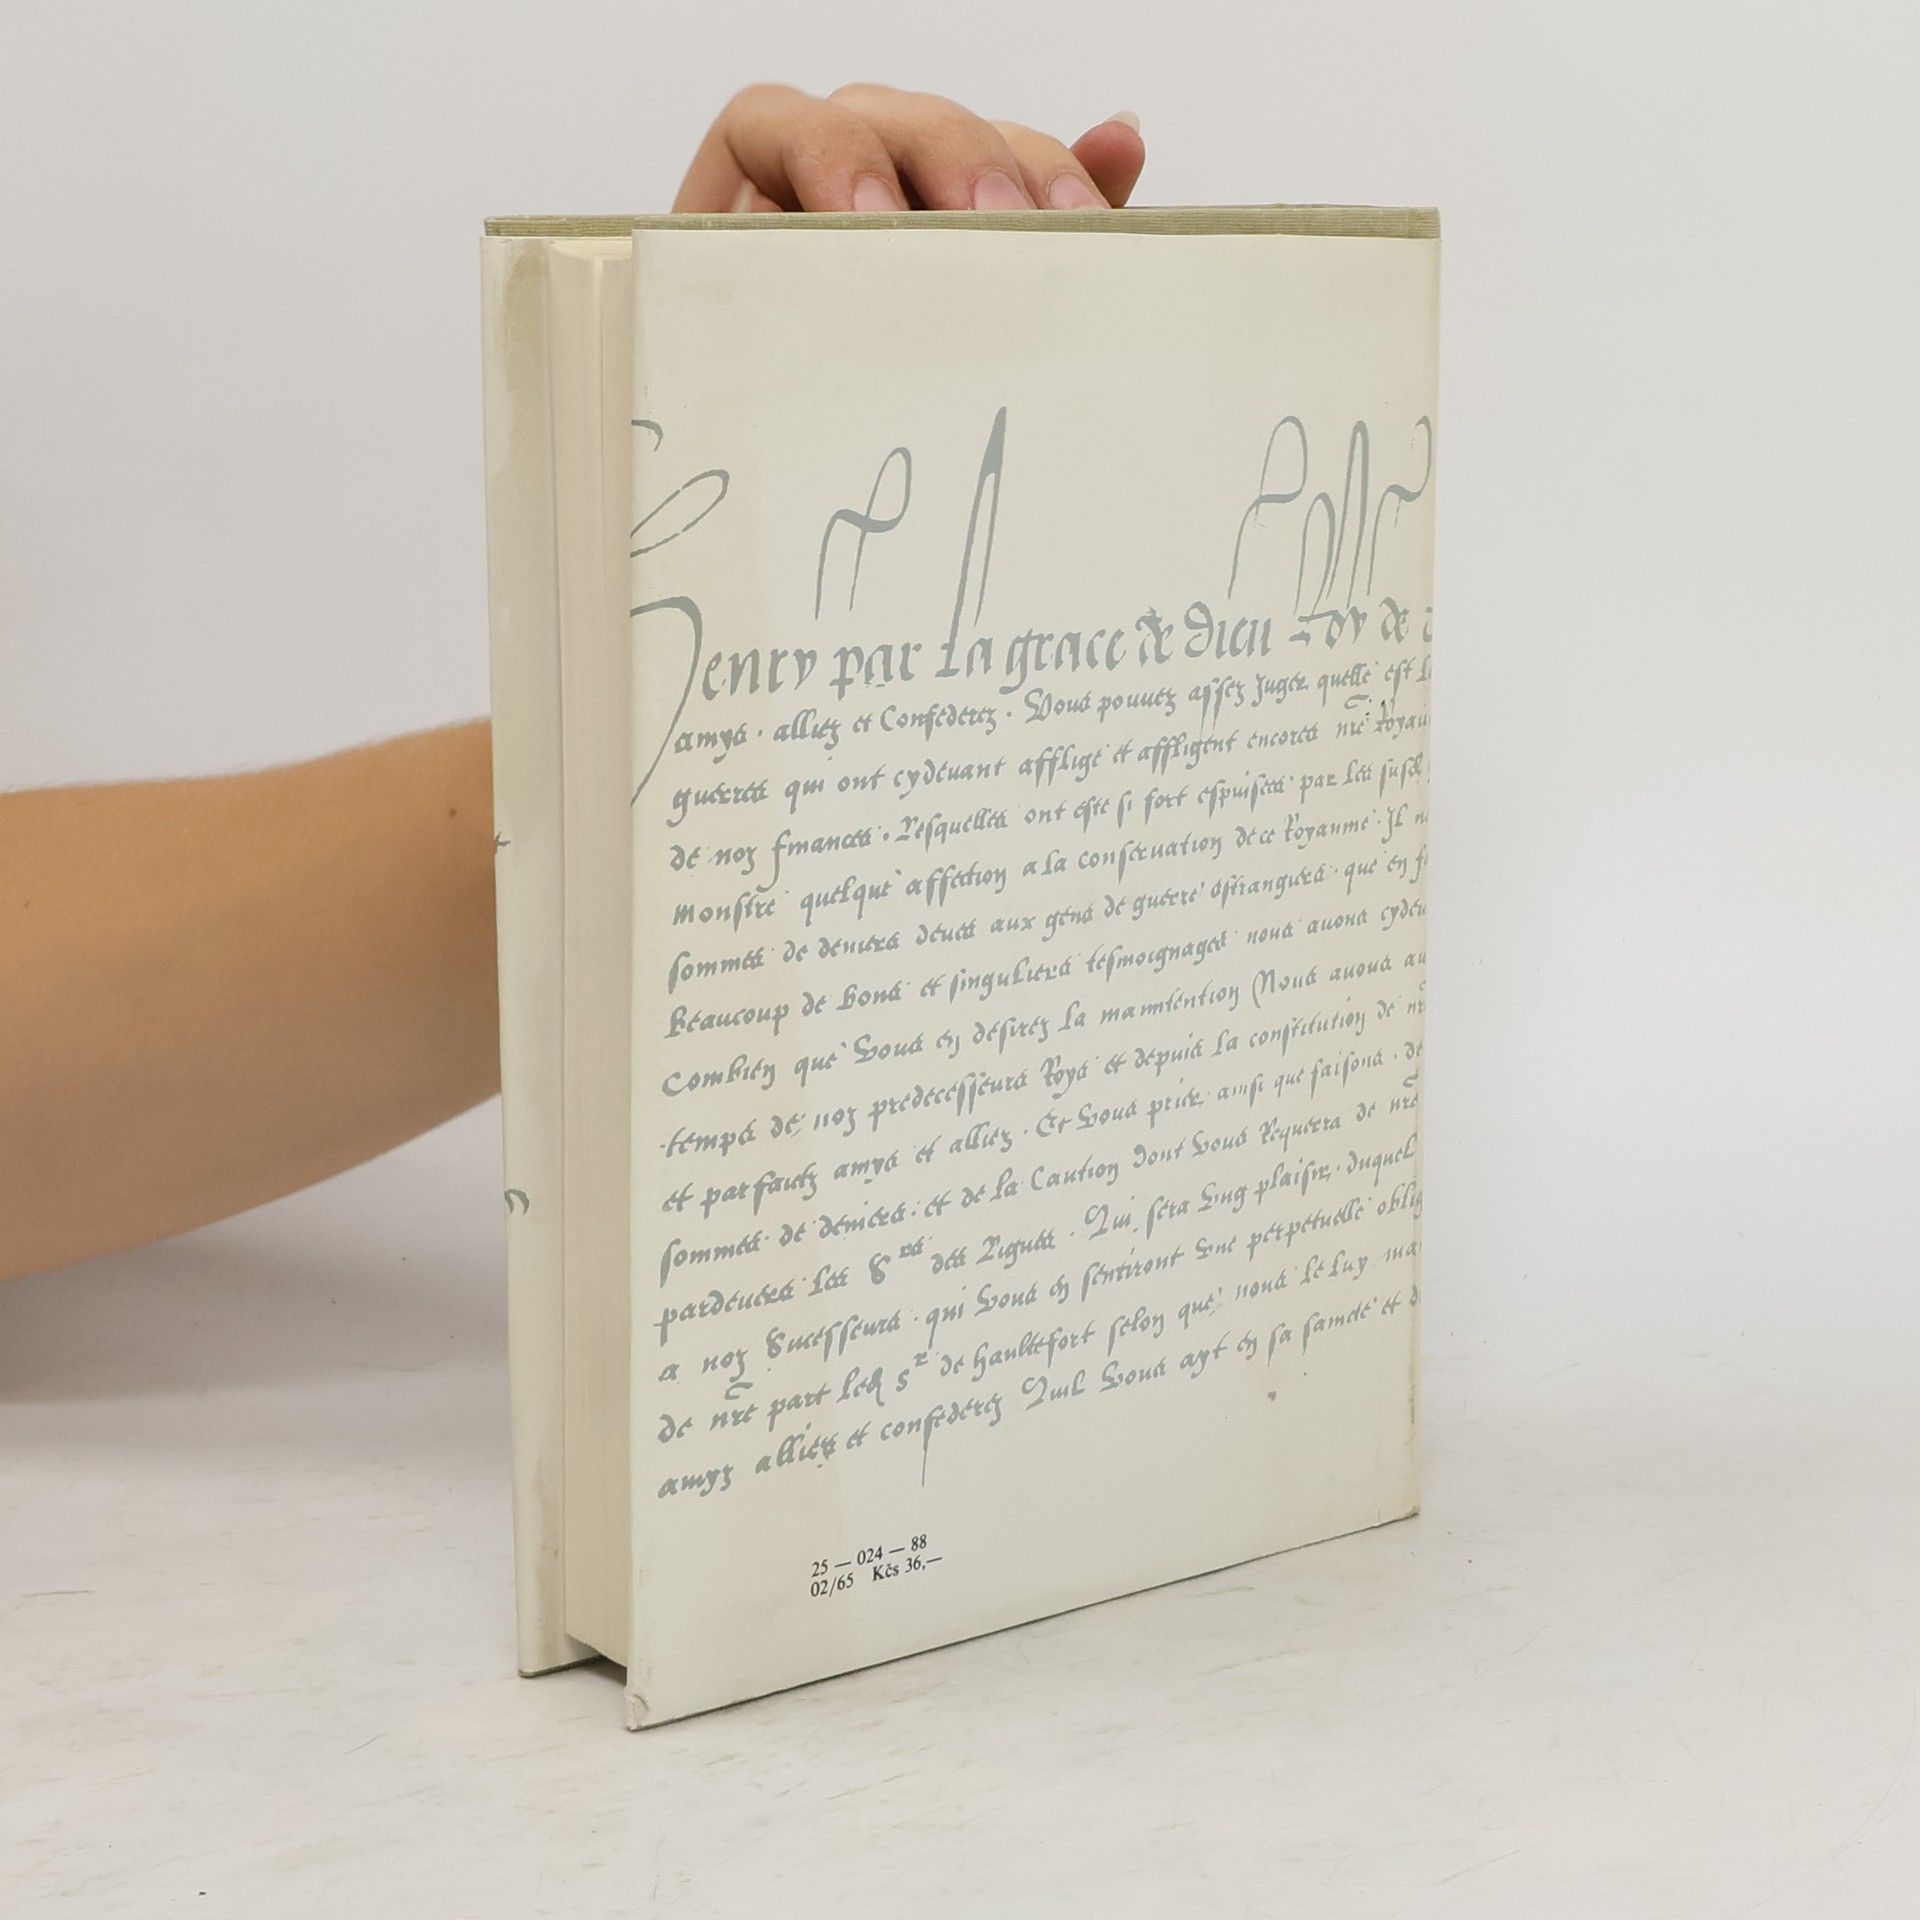 Henry par la grace de dieu Roy de
amys . alliez et Confederez . Vous pouuez assez Juger quelle est
guerres qui ont cydeuant afflige et affligent encores nre Royau
de noz finances . Lesquelles ont este si fort espuisees par les
monstre quelque affection a la conseruation de ce Royaume . Il
sommes de deniers deues aux gens de guerre estrangiers . que en
Beaucoup de bons et singuliers tesmoignages nous auons cydeu
Combien que vous en desirez la manntention Nous auons au
temps de noz predecesseurs Roys et depuis la constitution de
et parfaictz amys et alliez . Et vous prier ainsi que faisons . de
sommes de deniers . et de la Caution dont vous Requerra de nre
pardeuers les Srs des Ligues . Qui sera vng plaisir . duquel
a noz Sucesseurs . qui vous en sentiront vne perpetuelle oblig
de nre part led Sr de haultefort selon que nous le luy
amyz alliez et confederez Quil vous ayt en sa saincte et
25 — 024 — 88
02/65 Kčs 36,—